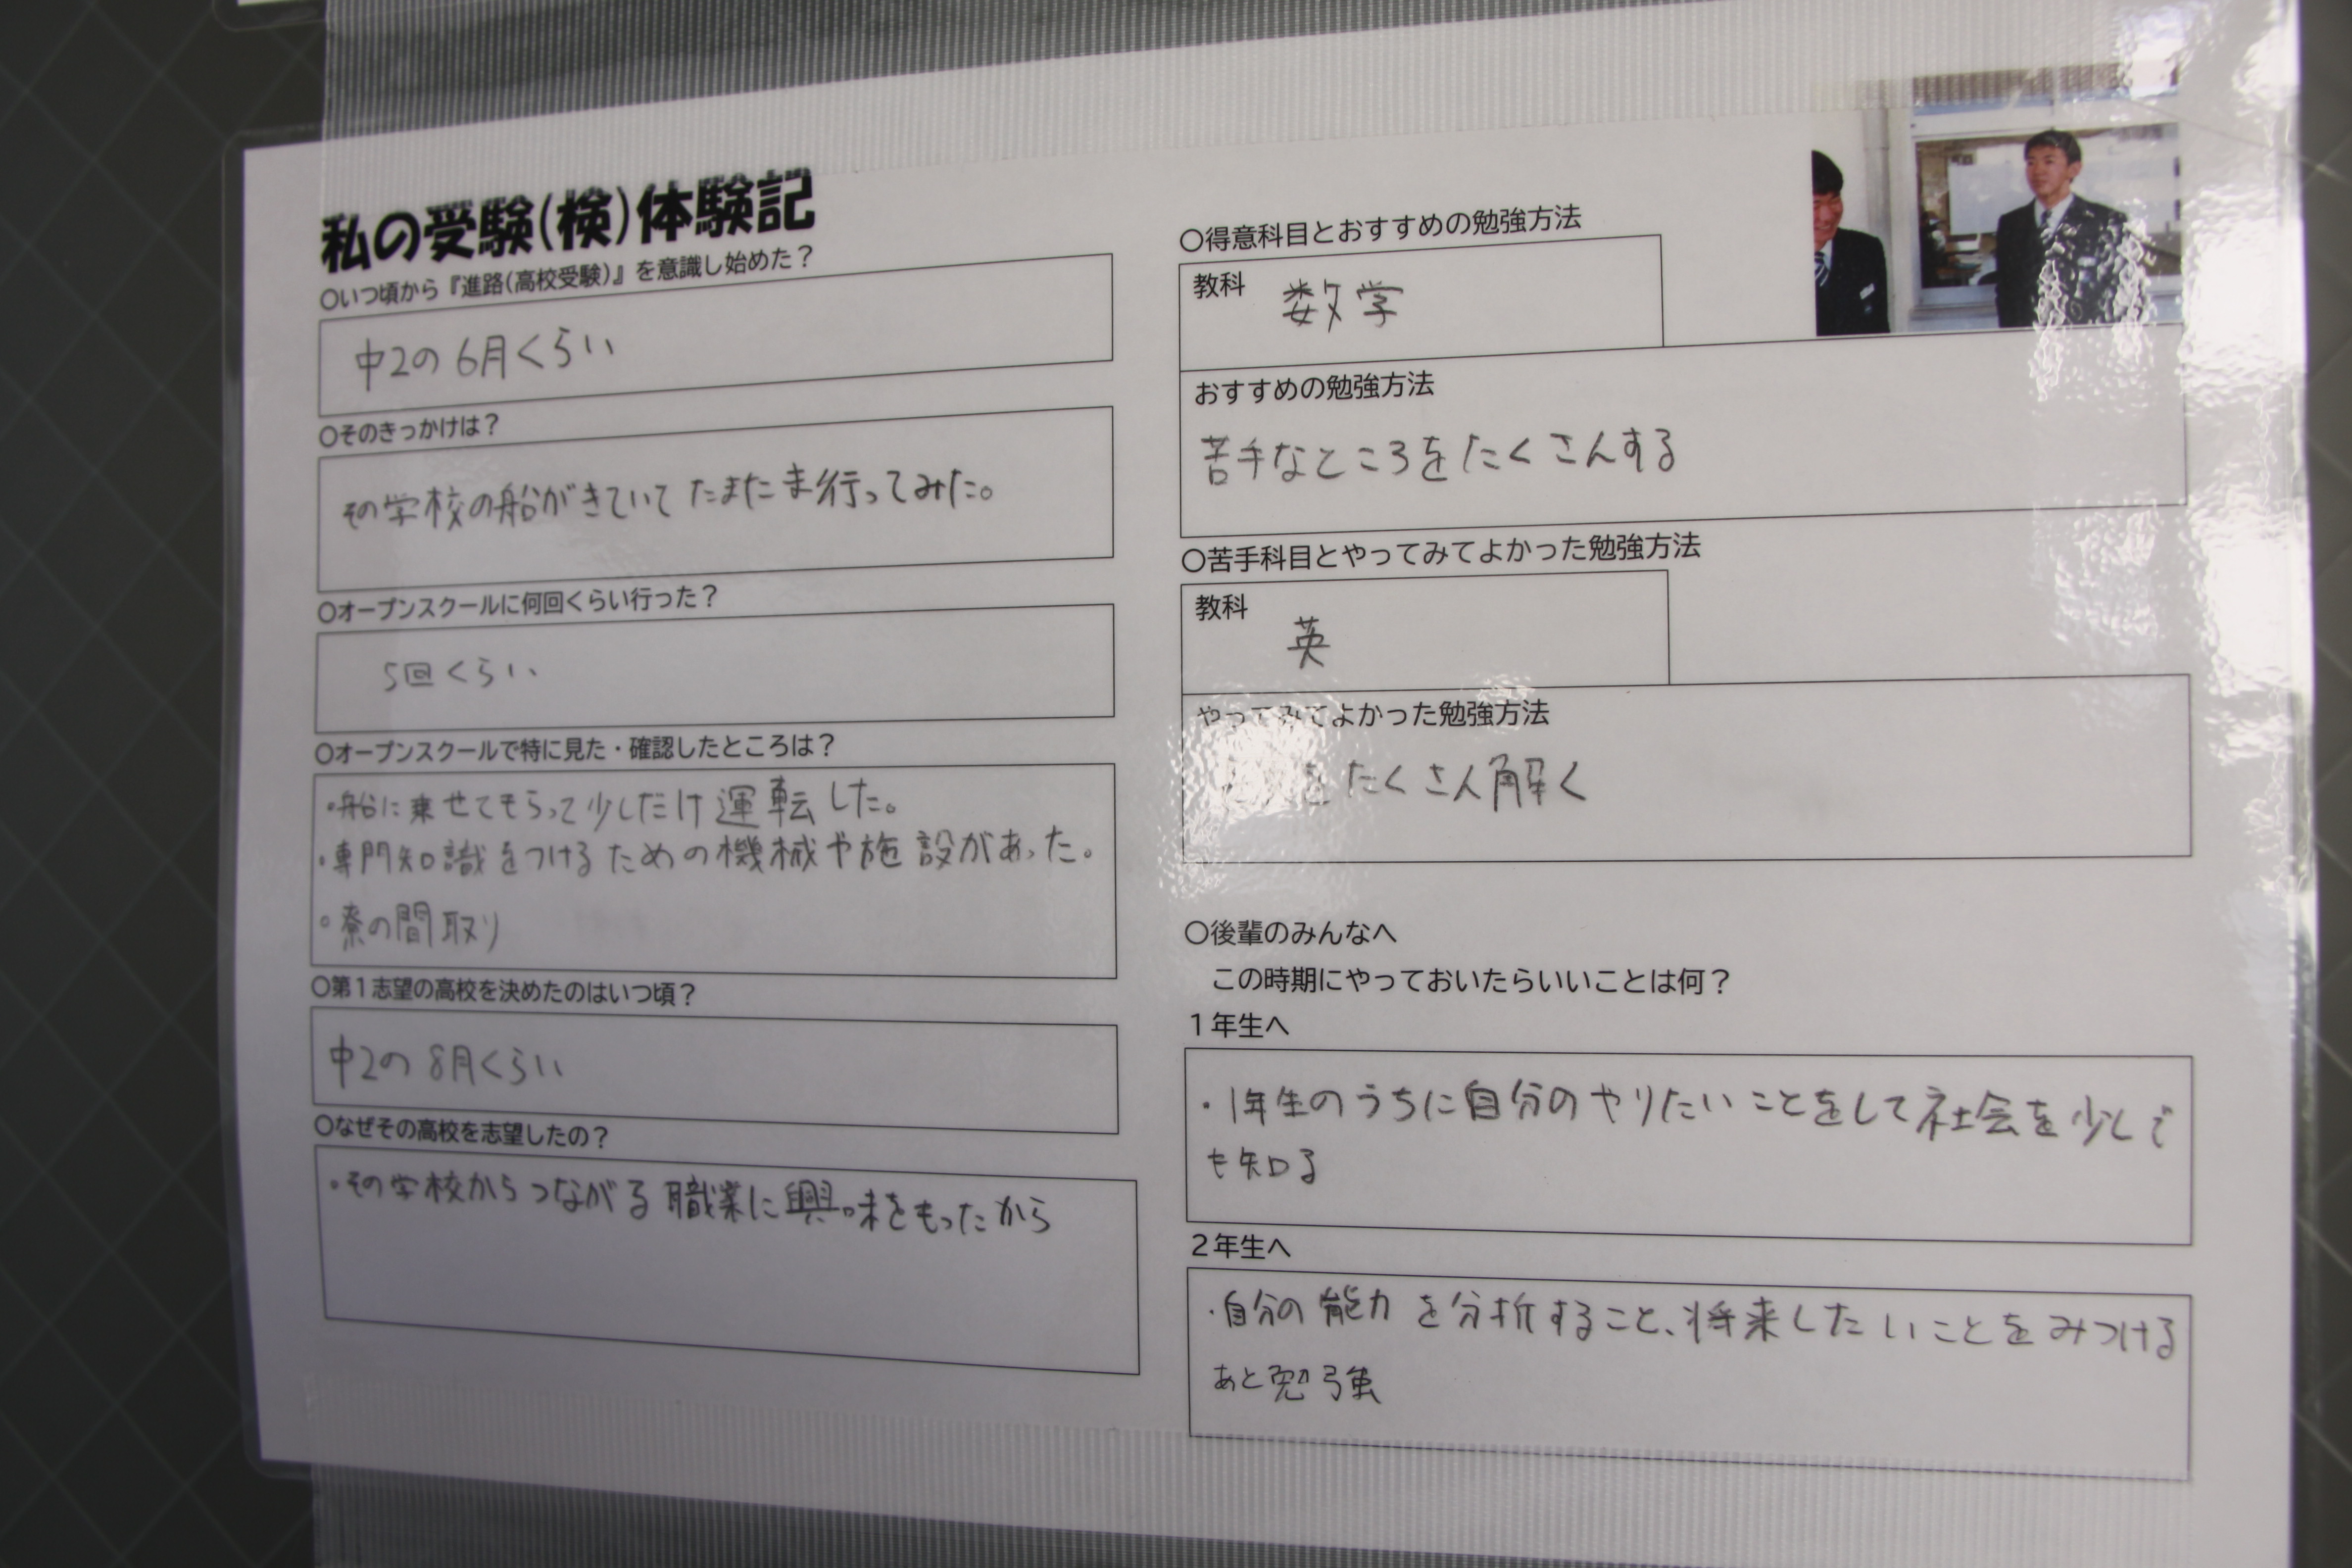 私の受験(検)体験記
○いつ頃から『進路(高校受験)』を意識し始めた？
中2の6月くらい
○そのきっかけは？
その学校の船がきていてたまたま行ってみた。
○オープンスクールに何回くらい行った？
5回くらい
○オープンスクールで特に見た・確認したところは？
・船に乗せてもらって少しだけ運転した。
・専門知識をつけるための機械や施設があった。
・寮の間取り
○第１志望の高校を決めたのはいつ頃？
中2の8月くらい
○なぜその高校を志望したの？
・その学校からつながる職業に興味をもったから
○得意科目とおすすめの勉強方法
教科 数学
おすすめの勉強方法
苦手なところをたくさんする
○苦手科目とやってみてよかった勉強方法
教科 英
やってみてよかった勉強方法
をたくさん解く
○後輩のみんなへ
この時期にやっておいたらいいことは何？
１年生へ
・1年生のうちに自分のやりたいことをして社会を少しで
も知る
２年生へ
・自分の能力を分析すること、将来したいことをみつける
あと勉強